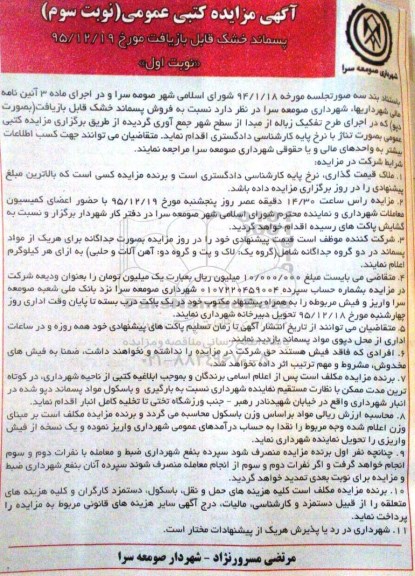 آگهی مزایده کتبی عمومی(نوبت سوم)
پسماند خشک قابل بازیافت مورخ ۹۵/۱۲/۱۹
«نوبت اول»
شهرداری صومعه سرا
باستناد بند سه صورتجلسه مورخه ۹۴/۱/۱۸ شورای اسلامی شهر صومه سرا و در اجرای ماده ۳ آئین نامه
مالی شهرداریها، شهرداری صومعه سرا در نظر دارد نسبت به فروش پسماند خشک قابل بازیافت(بصورت
دپو) که در اجرای طرح تفکیک زباله از مبدا از سطح شهر جمع آوری گردیده از طریق برگزاری مزایده کتبی
عمومی بصورت تناژ با نرخ پایه کارشناسی دادگستری اقدام نماید. متقاضیان می توانند جهت کسب اطلاعات
بیشتر به واحدهای مالی و یا حقوقی شهرداری صومعه سرا مراجعه نمایند.
شرایط شرکت در مزایده:
۱. ملاک قیمت گذاری، نرخ پایه کارشناسی دادگستری است و برنده مزایده کسی است که بالاترین مبلغ
پیشنهادی را در روز برگزاری مزایده داده باشد.
۲. مزایده راس ساعت ۱۴/۳۰ دقیقه عصر روز پنجشنبه مورخ ۹۵/۱۲/۱۹ با حضور اعضای کمیسیون
معاملات شهرداری و نماینده محترم شورای اسلامی شهر صومعه سرا در دفتر کار شهردار برگزار و نسبت به
گشایش پاکت های رسیده اقدام خواهد گردید.
۳. شرکت کننده موظف است قیمت پیشنهادی خود را در روز مزایده بصورت جداگانه برای هریک از مواد
پسماند در دو گروه جداگانه شامل(گروه یک: لاک و پت و گروه دو: آهن آلات و حلبی) به ازای هر کیلوگرم
اعلام نمایند.
۴. متقاضی می بایست مبلغ ۱۰/۰۰۰/۰۰۰ میلیون ریال بعبارت یک میلیون تومان را بعنوان ودیعه شرکت
در مزایده بشماره حساب سپرده ۰۱۰۷۲۲۰۴۵۹۰۰۴ شهرداری صومعه سرا نزد بانک ملی شعبه صومعه
سرا واریز و فیش مربوطه را به همراه پیشنهاد مکتوب خود در یک پاکت درب بسته تا پایان وقت اداری روز
چهارشنبه مورخ ۹۵/۱۲/۱۸ تحویل دبیرخانه شهرداری نمایند.
۵. متقاضیان می توانند از تاریخ انتشار آگهی تا زمان تسلیم پاکت های پیشنهادی خود همه روزه و در ساعات
اداری از محل دپوی مواد پسماند بازدید نمایند.
۶. افرادی که فاقد فیش هستند حق شرکت در مزایده را نداشته و نخواهند داشت، ضمنا به فیش های
مخدوش، مشروط و مهم ترتیب اثر داده نخواهد شد.
۷. برنده مزایده مکلف است پس از اعلام اسامی برندگان و بموجب ابلاغیه کتبی از ناحیه شهرداری، در کوتاه
ترین مدت ممکن با نظارت مستقیم نماینده شهرداری نسبت به بارگیری و باسکول مواد پسماند دپو شده در
انبار شهرداری واقع در خیابان شهیدنادر رهبر - جنب ورزشگاه تختی تا تخلیه کامل انبار اقدام نماید.
۸. محاسبه ارزش ریالی مواد براساس وزن باسکول محاسبه می گردد و برنده مزایده مکلف است بر مبنای
وزن اعلام شده وجه مربوط را نقدا به حساب درآمدهای عمومی شهرداری واریز نموده و یک نسخه از فیش
واریزی را تحویل نماینده شهرداری نماید.
۹. چنانچه نفر اول برنده مزایده منصرف شود سپرده بنفع شهرداری ضبط و معامله با نفرات دوم و سوم
انجام خواهد گرفت و اگر نفرات دوم و سوم از انجام معامله منصرف شوند سپرده آنان بنفع شهرداری ضبط
و مزایده برای نوبت بعدی تمدید خواهد گردید.
۱۰. برنده مزایده مکلف است کلیه هزینه های حمل و نقل، باسکول، دستمزد کارگران و کلیه هزینه های
متعلقه را از قبیل دستمزد و کارشناسی، مالیات، درج آگهی سایر هزینه های قانونی مربوط به مزایده را
پرداخت نماید.
۱۱. شهرداری در رد یا پذیرش هریک از پیشنهادات مختار است.
مرتضی مسرورنژاد - شهردار صومعه سرا